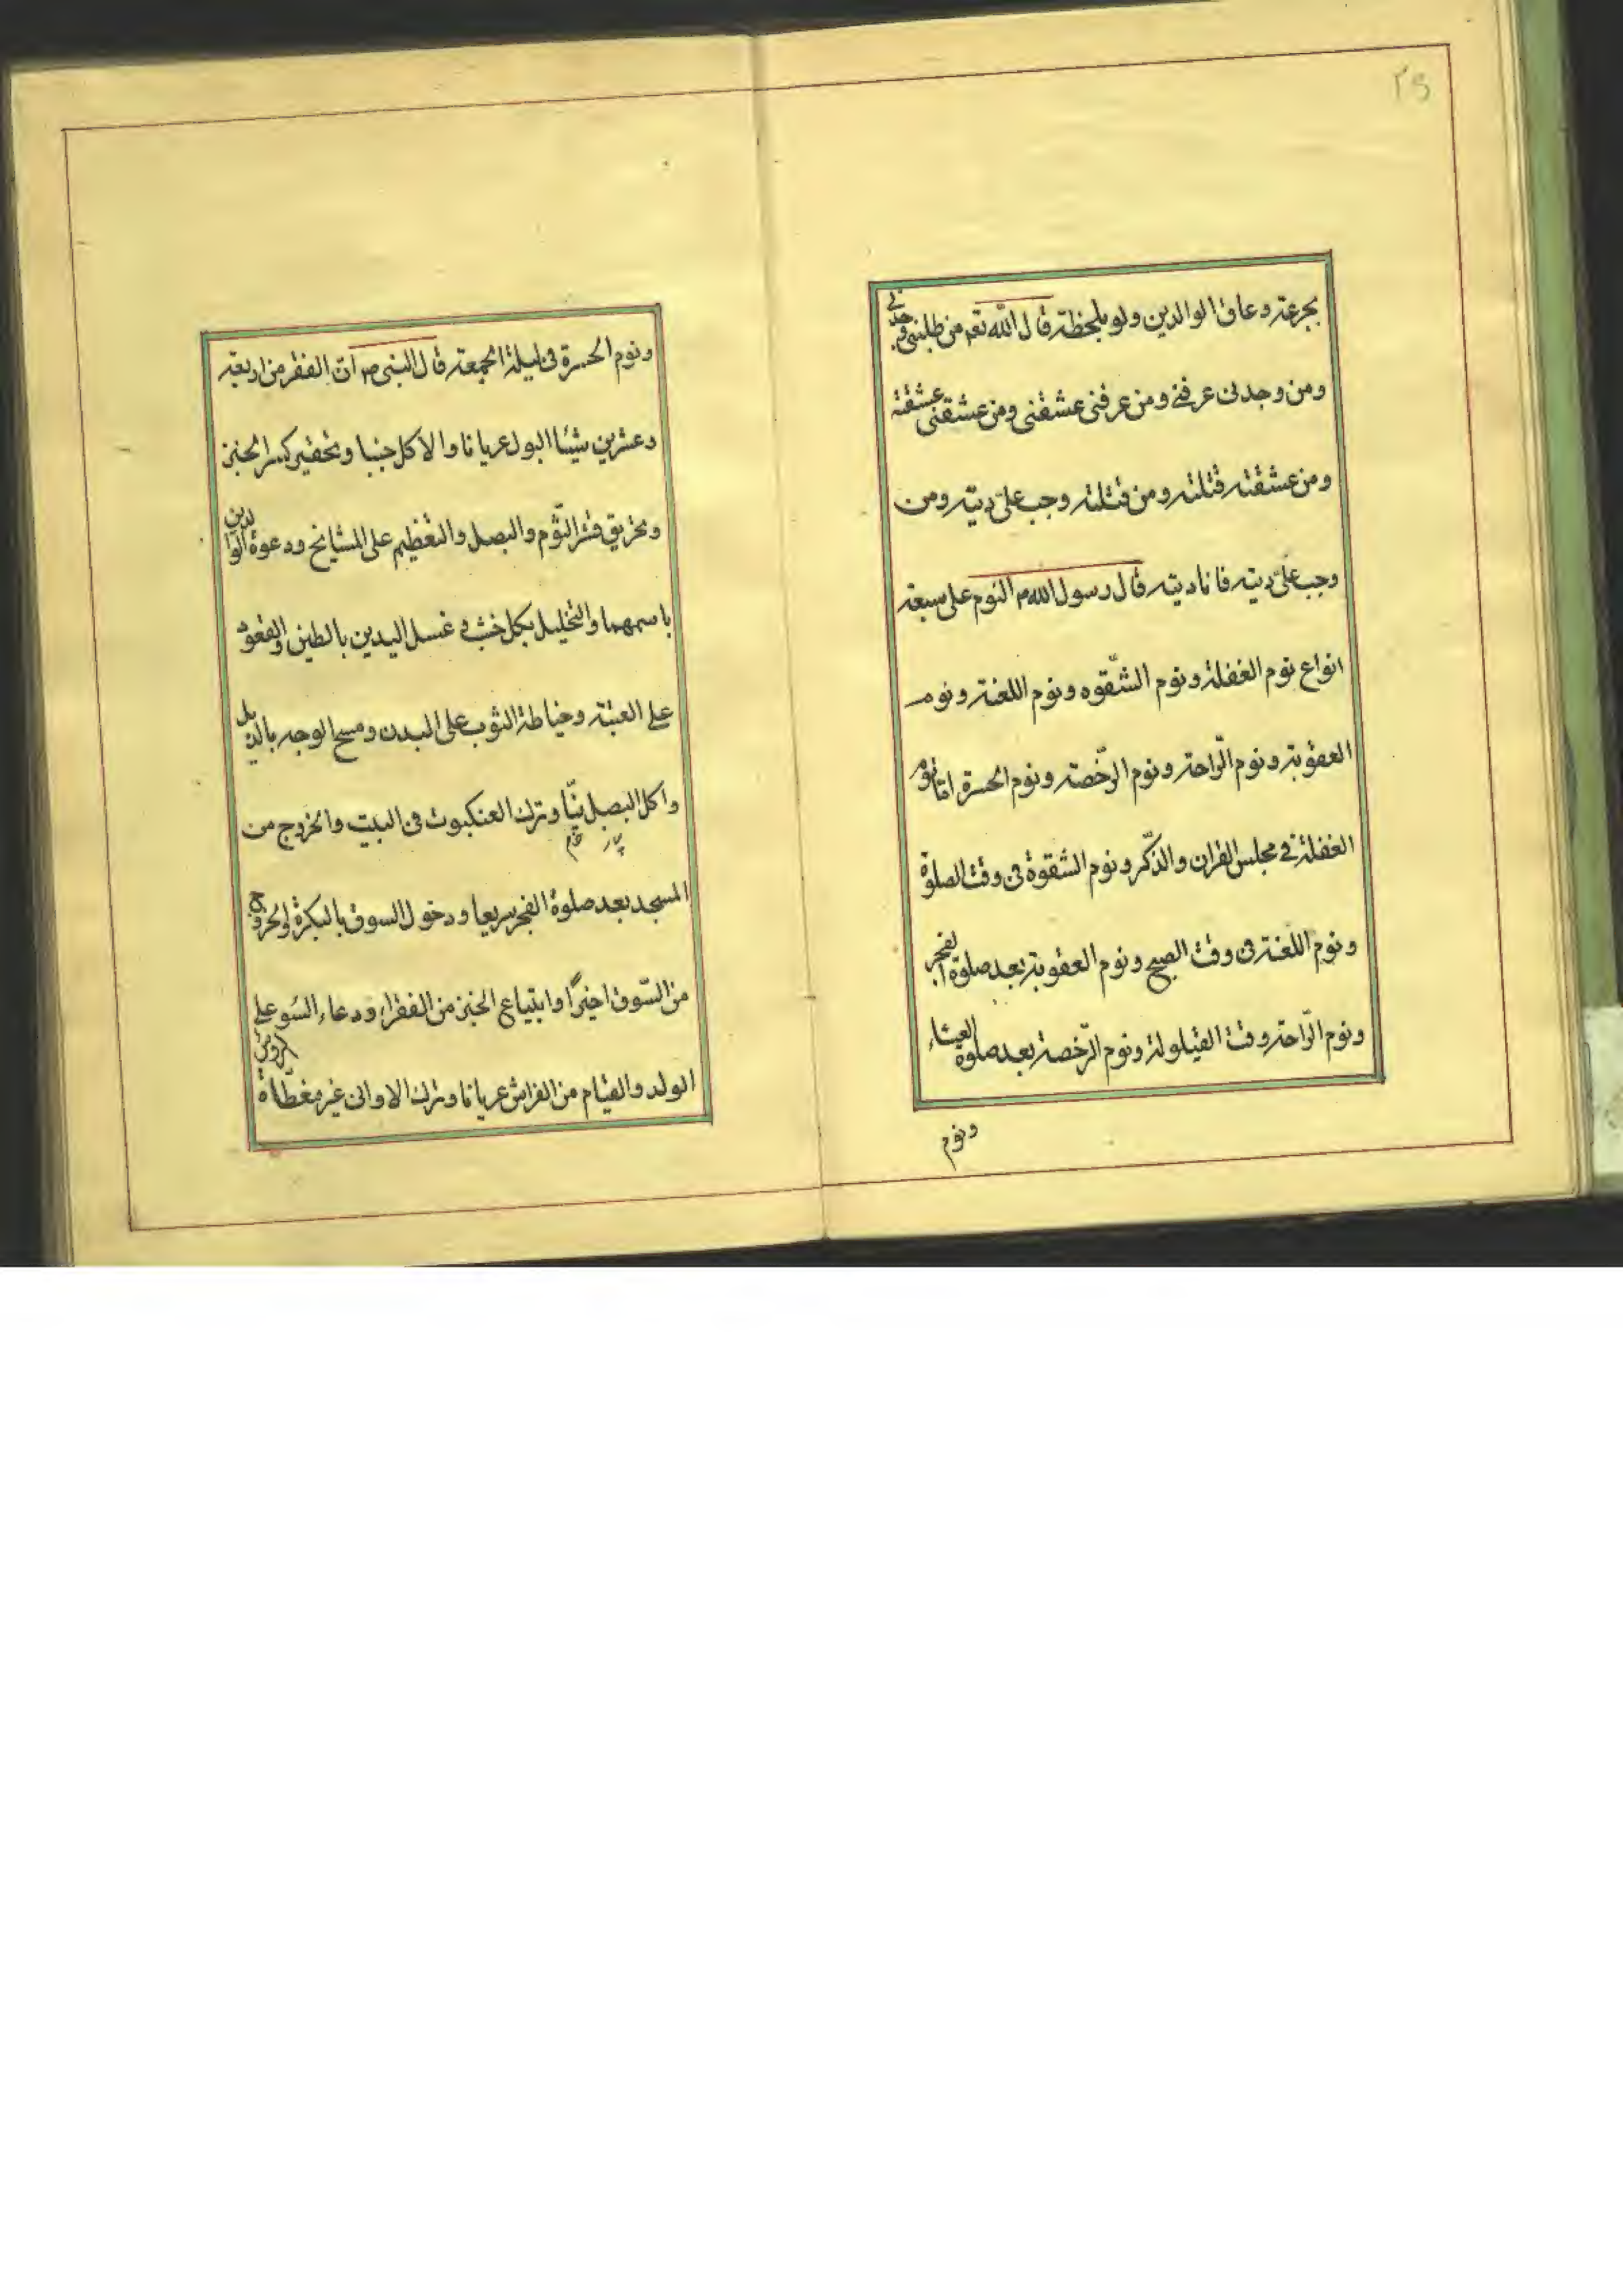 ٢٥
بجرعة وعاق الوالدين ولو بلحظة قال الله تعم من طلبنى وجدنى
ومن وجدنى عرفنى ومن عرفنى عشقنى ومن عشقنى عشقته
ومن عشقته قتلته ومن قتلته وجب علىّ ديته ومن
وجب علىّ ديته فانا ديته قال رسول الله م النوم على سبعة
انواع نوم الغفلة ونوم الشّقوه ونوم اللعنة ونوم
العقوبة ونوم الرّاحة ونوم الرّخصة ونوم الحسرة امّا نوم
الغفلة فى مجلس القران والذّكر ونوم الشقوة فى وقت الصلوة
ونوم اللّعنة فى وقت الصبح ونوم العقوبة بعد صلوة الفجر
ونوم الرّاحة وقت القيلولة ونوم الرّخصة بعد صلوة العشاء
ونوم
ونوم الحسرة فى ليلة الجمعة قال النبى ص انّ الفقر من اربعة
وعشرين شيئا البول عريانا والاكل جنبا وتحقير كسر الخبز
وتحريق قشر الثّوم والبصل والتعظيم على المشايخ ودعوة الوالدين
باسمهما والتخليل بكل خشب و غسل اليدين بالطين والقعود
على العتبة وخياطة الثوب على البدن ومسح الوجه بالذيل
واكل البصل نيّا وترك العنكبوت فى البيت والخروج من
خام
المسجد بعد صلوة الفجر سريعا ودخول السوق بالبكرة والخروج
من السّوق اخيرًا وابتياع الخبز من الفقراء ودعاء السّو على
الولد والقيام من الفراش عريانا وترك الاوانى غير مغطّاة